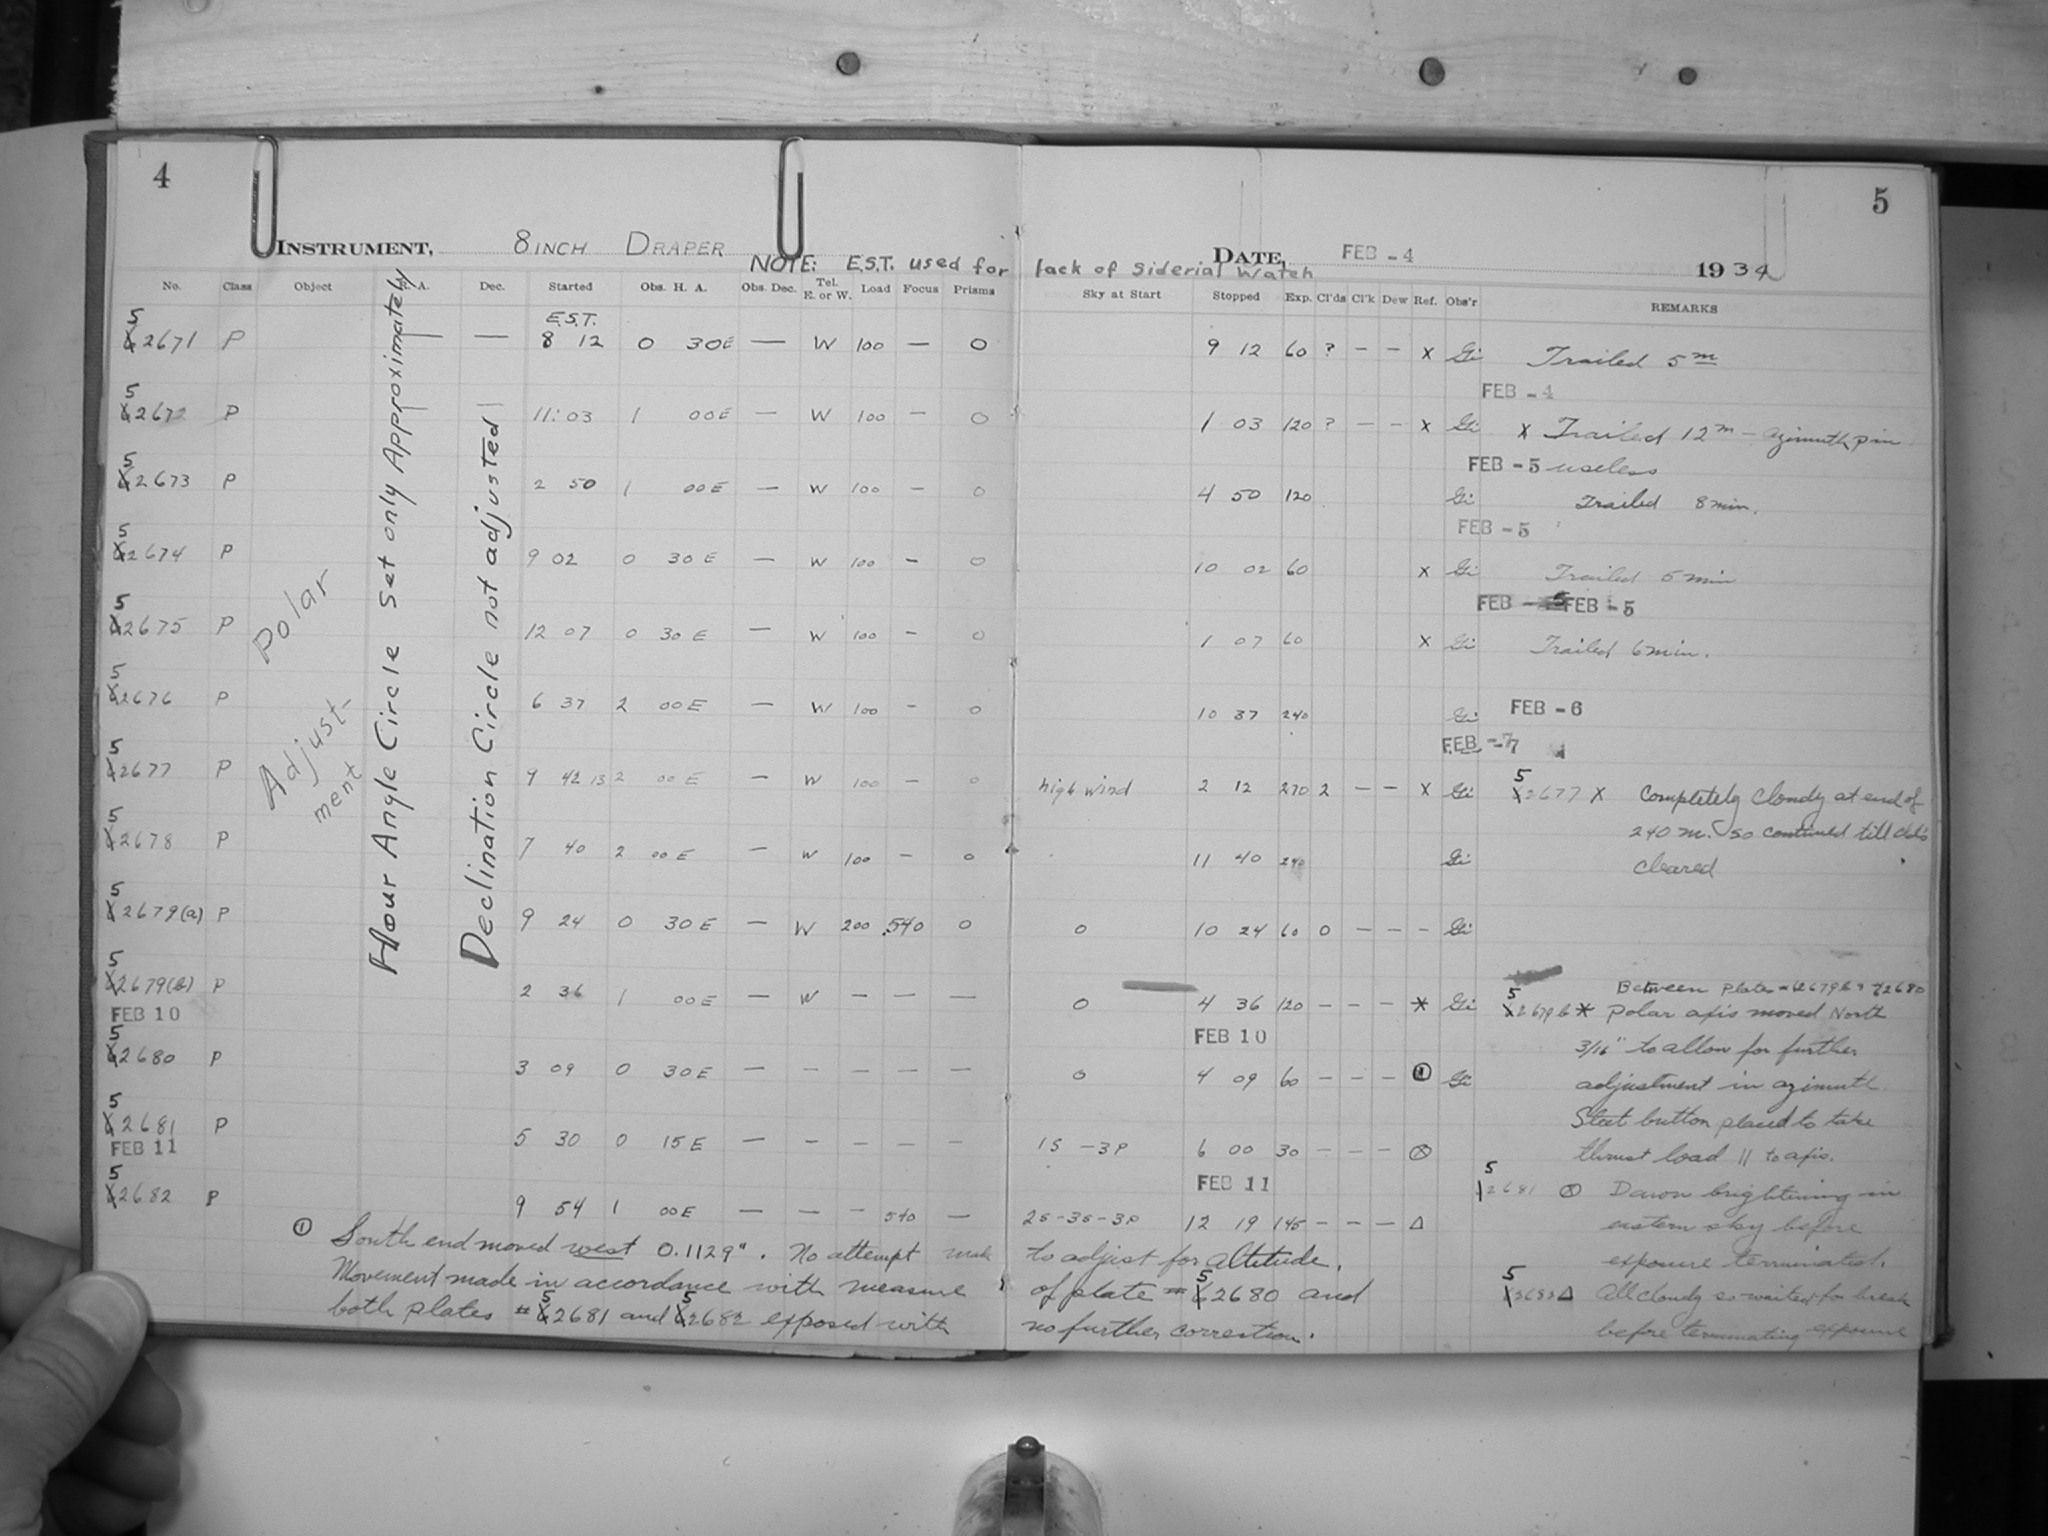 4
5
INSTRUMENT, 8 INCH DRAPER
DATE, FEB -4
1934
NOTE: E.S.T. used for lack of Siderial Watch
No. Class Object R. A. Dec. Started Obs. H. A. Obs. Dec. Tel. E. or W. Load Focus Prisms Sky at Start Stopped Exp. Cl'ds Cl'k Dew Ref. Obs'r REMARKS
E.S.T.
5
2671 P — — 8 12 0 30E — W 100 — 0 9 12 60 ? — — x Gi Trailed 5m
FEB -4
5
2672 P 11:03 1 00E — W 100 — 0 1 03 120 ? — — x Gi x Trailed 12m — azimuth pin
FEB -5 useless
5
2673 P 2 50 1 00E — W 100 — 0 4 50 120 Gi Trailed 8 min.
FEB -5
5
2674 P 9 02 0 30 E — W 100 — 0 10 02 60 x Gi Trailed 5 min
FEB -5 FEB -5
5
2675 P 12 07 0 30 E — W 100 — 0 1 07 60 x Gi Trailed 6 min.
5
2676 P 6 37 2 00E — W 100 — 0 10 37 240 Gi FEB -6
FEB -7
5
2677 P 9 42 13 2 00 E — W 100 — 0 high wind 2 12 270 2 — — x Gi 5 2677 x Completely cloudy at end of
240 m. so continued till clds
5
2678 P 7 40 2 00 E — W 100 — 0 11 40 240 Gi cleared
5
2679(a) P 9 24 0 30 E — W 200 .540 0 0 10 24 60 0 — — — Gi
5
2679(b) P 2 36 1 00E — W — — — 0 4 36 120 — — — * Gi
Between plates 2679b & 2680
5
2679b * Polar axis moved North
FEB 10
FEB 10
3/16" to allow for further
5
2680 P 3 09 0 30E — — — — — 0 4 09 60 — — — ① Gi adjustment in azimuth.
Steel button placed to take
5
2681 P 5 30 0 15 E — — — — — 1S -3P 6 00 30 — — — ⊗ thrust load || to axis.
FEB 11
FEB 11
5
2681 ⊗ Dawn brightening in
5
2682 P 9 54 1 00E — — — 540 — 2S-3S-3P 12 19 145 — — — Δ eastern sky before
exposure terminated.
5
2682 Δ All cloudy so waited for break
before terminating exposure
Polar
Adjust-
ment
Hour Angle Circle Set only Approximately
Declination Circle not adjusted
① South end moved west 0.1129". No attempt made to adjust for altitude.
Movement made in accordance with measure of plate # 52680 and
both plates # 52681 and 52682 exposed with no further correction.